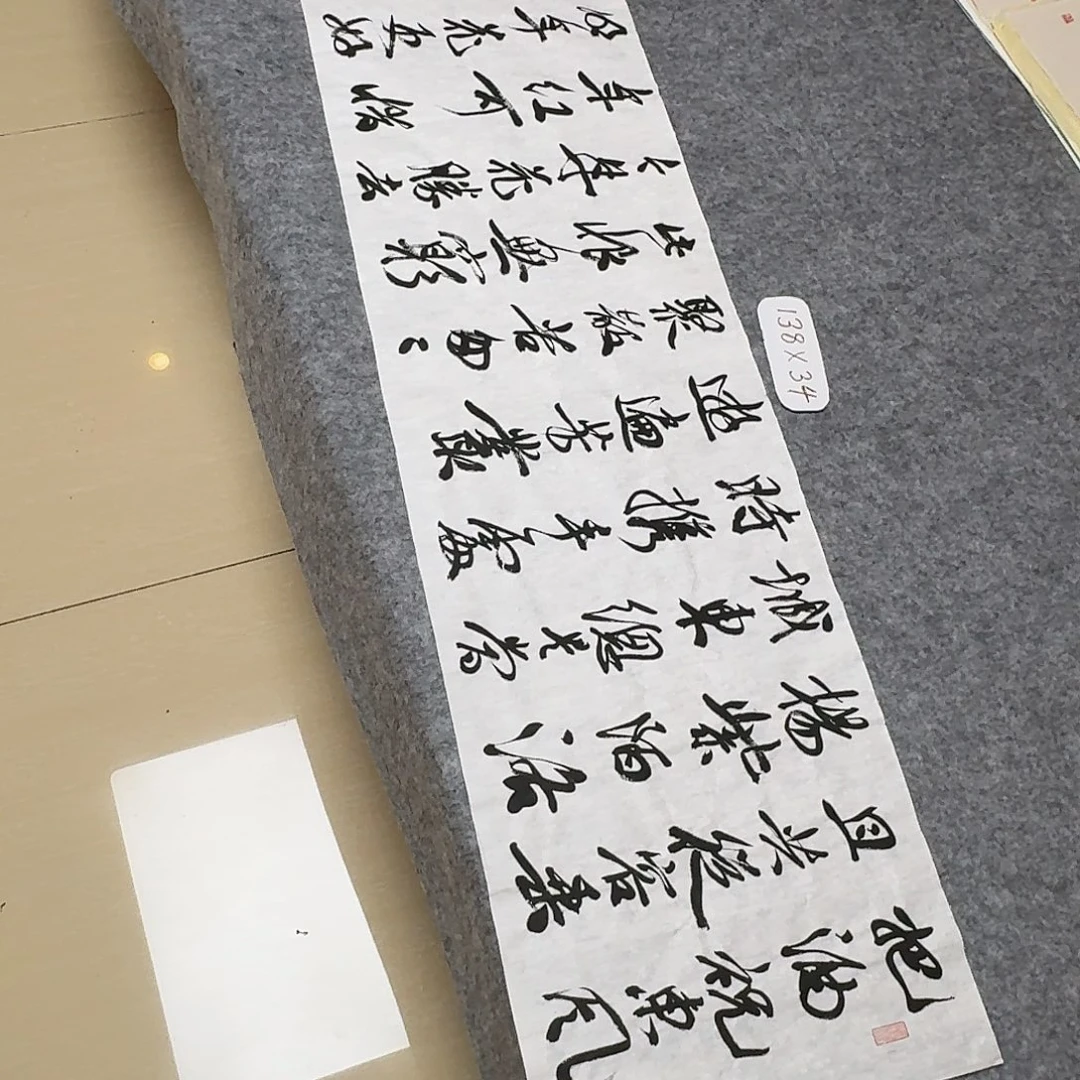 把酒祝東風
且共從容垂
楊紫陌洛
城東總是當
時携手處
遊遍芳叢
聚散苦匆々
此恨無窮
今年花勝去
年紅可惜
明年花更好
138X34